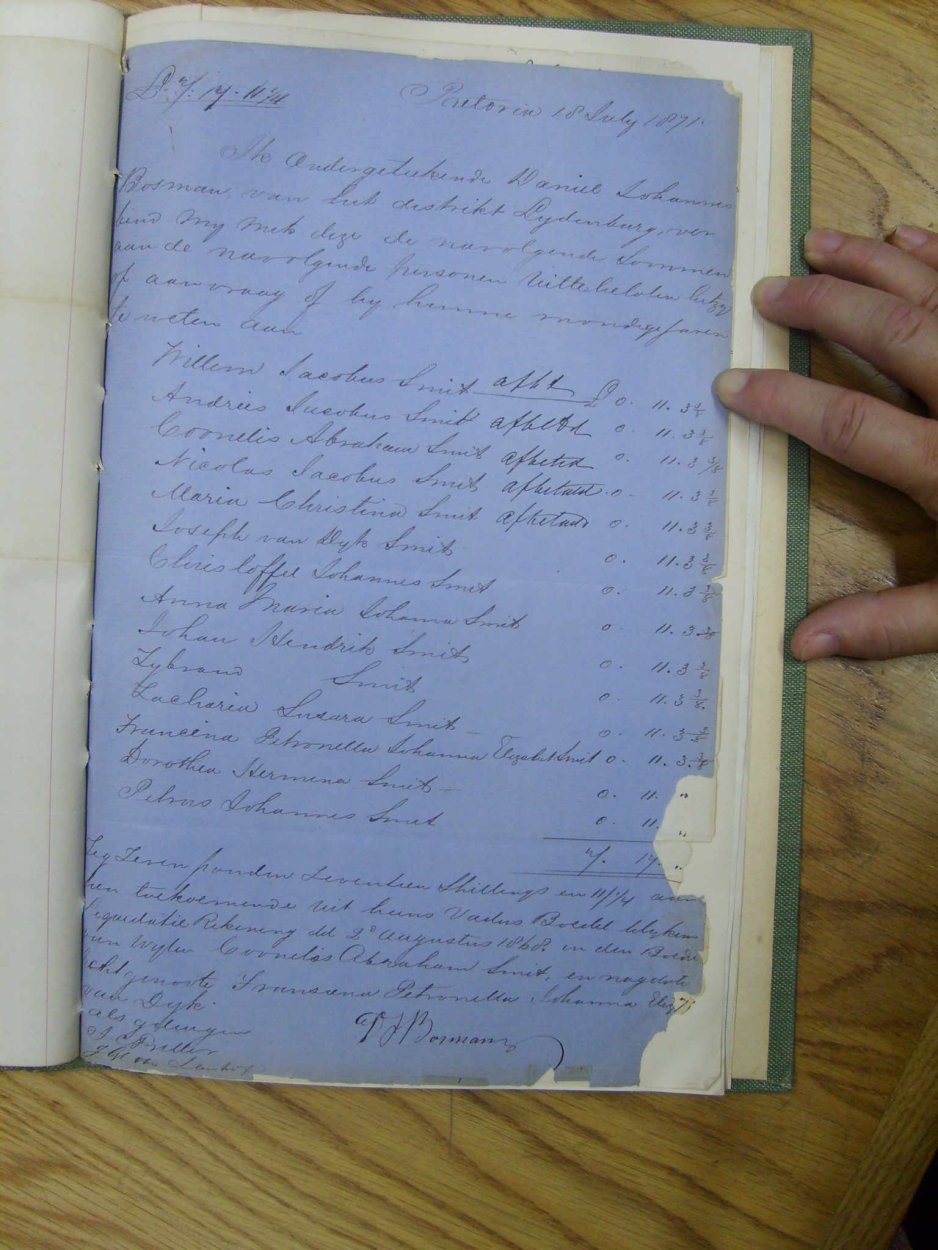 £ 7. 17. 11 1/4
Pretoria 18 July 1871.
Ik Ondergeteekende Daniel Johannes
Bosman, van het distrikt Lydenburg, ver
bind my mits deze de navolgende Sommen
aan de navolgende personen uittebetalen hetzy
op aanvraag of by hunne mondigejaren
te weten aan
Willem Jacobus Smit afbt £ 0. 11. 3
Andries Jacobus Smit afbetd 0. 11. 3
Cornelis Abraham Smit afbetad 0. 11. 3
Nicolas Jacobus Smit afbetaald 0. 11. 3
Maria Christina Smit afbetaad 0. 11. 3
Joseph van Dyk Smit 0. 11. 3
Christoffel Johannes Smit 0. 11. 3
Anna Maria Johanna Smit 0. 11. 3
Johan Hendrik Smit 0. 11. 3
Zybrand Smit 0. 11. 3
Zacharia Susara Smit 0. 11. 3
Francina Petronella Johanna Elizabet Smit 0. 11. 3
Dorothea Hermina Smit 0. 11. "
Petrus Johannes Smit 0. 11. "
7. 17. "
Zeg Zeven ponden Zeventien Shillings en 11 1/4 aan
hen toekomende uit huns Vaders Boedel blyken
Liquidatie Rekening dd 2e Augustus 1868 in den Boedel
van Wylen Cornelis Abraham Smit, en nagelate
echtgenoote Fransina Petronella Johanna Eliz
van Dyk
als getuigen
D J Bosman